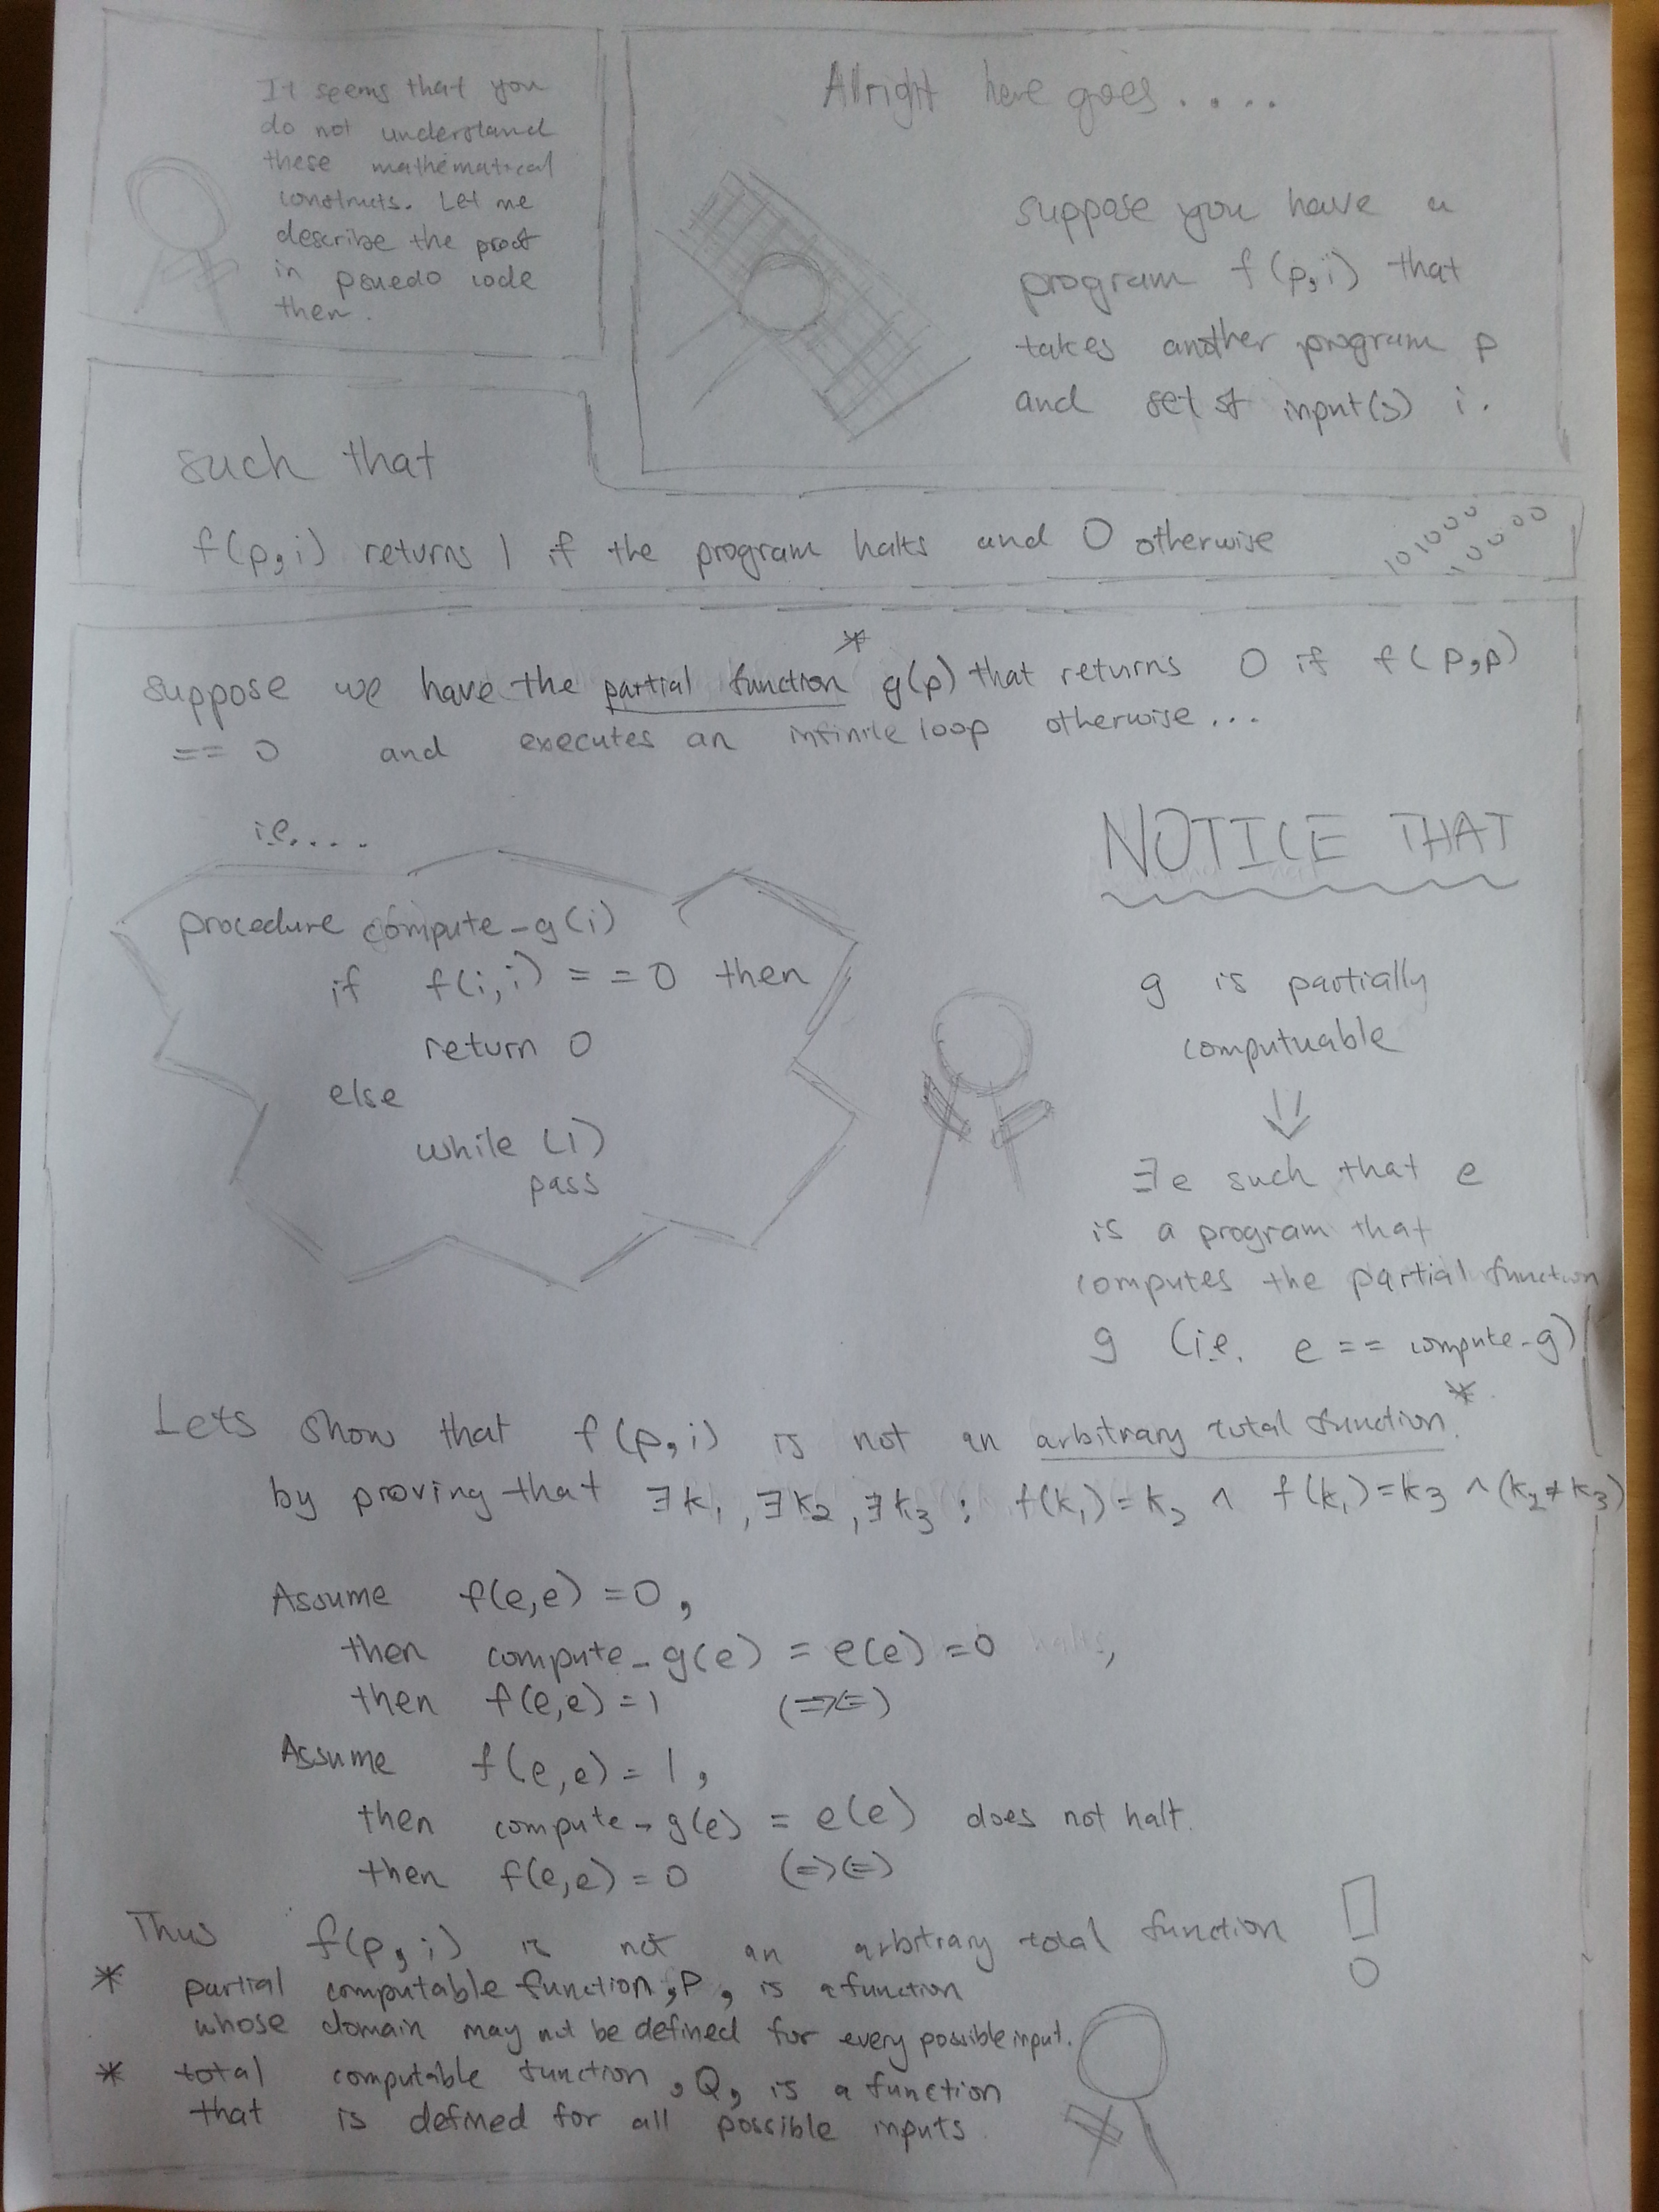 It seems that you
do not understand
these mathematical
constructs. Let me
describe the proof
in psuedo code
then.
Alright here goes....
suppose you have a
program f(p,i) that
takes another program p
and set of input(s) i.
such that
f(p,i) returns 1 if the program halts and 0 otherwise
101000
10000
suppose we have the partial function* g(p) that returns 0 if f(p,p)
== 0 and executes an infinite loop otherwise...
i.e....
procedure compute_g(i)
if f(i,i) == 0 then
return 0
else
while (1)
pass
NOTICE THAT
g is partially
computuable
⇓
∃e such that e
is a program that
computes the partial function
g (i.e. e == compute_g)
Lets show that f(p,i) is not an arbitrary total function*.
by proving that ∃k₁, ∃k₂, ∃k₃ : f(k₁)=k₂ ∧ f(k₁)=k₃ ∧ (k₂≠k₃)
Assume f(e,e) = 0,
then compute_g(e) = e(e) = 0 halts,
then f(e,e) = 1 (⇒⇐)
Assume f(e,e) = 1,
then compute_g(e) = e(e) does not halt.
then f(e,e) = 0 (⇒⇐)
Thus f(p,i) is not an arbitrary total function !
* partial computable function, P, is a function
whose domain may not be defined for every possible input.
* total computable function, Q, is a function
that is defined for all possible inputs